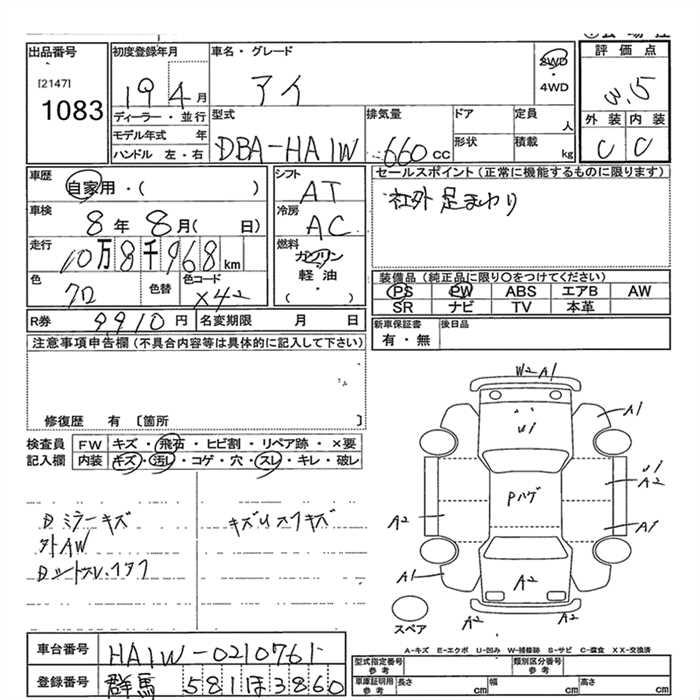 出品番号
[2147]
1083
初度登録年月
19 4月
ディーラー・並行
モデル年式 年
ハンドル 左・右
車名・グレード
アイ
2WD
・
4WD
評価点
3.5
外装 内装
C C
型式
DBA-HA1W
排気量
660cc
ドア
形状
定員
人
積載
kg
車歴
自家用・( )
車検
8年 8月( 日)
走行
10万8千968km
色
クロ
色替
色コード
X42
シフト
AT
冷房
AC
燃料
ガソリン
・
軽油
・
( )
R券 9910円
名変期限 月 日
セールスポイント(正常に機能するものに限ります)
社外 足まわり
装備品(純正品に限り〇をつけてください)
PS PW ABS エアB AW
SR ナビ TV 本革
新車保証書
有・無
後日品
注意事項申告欄(不具合内容等は具体的に記入して下さい)
修復歴 有 〔箇所 〕
検査員
記入欄
FW キズ・飛石・ヒビ割・リペア跡・×要
内装 キズ・汚レ・コゲ・穴・スレ・キレ・破レ
Dミラーキズ
外AW
キズUスリキズ
W2 A1
A1
U1
U1
A2
Pハゲ
A2
A1
A1
A2
A2
A2
スペア
A-キズ E-エクボ U-凹み W-補修跡 S-サビ C-腐食 XX-交換済
車台番号 HA1W-0210761
登録番号 群馬 581 ほ 3860
型式指定番号
参考
類別区分番号
参考
車庫証明用
参考
長さ cm
幅 cm
高さ cm